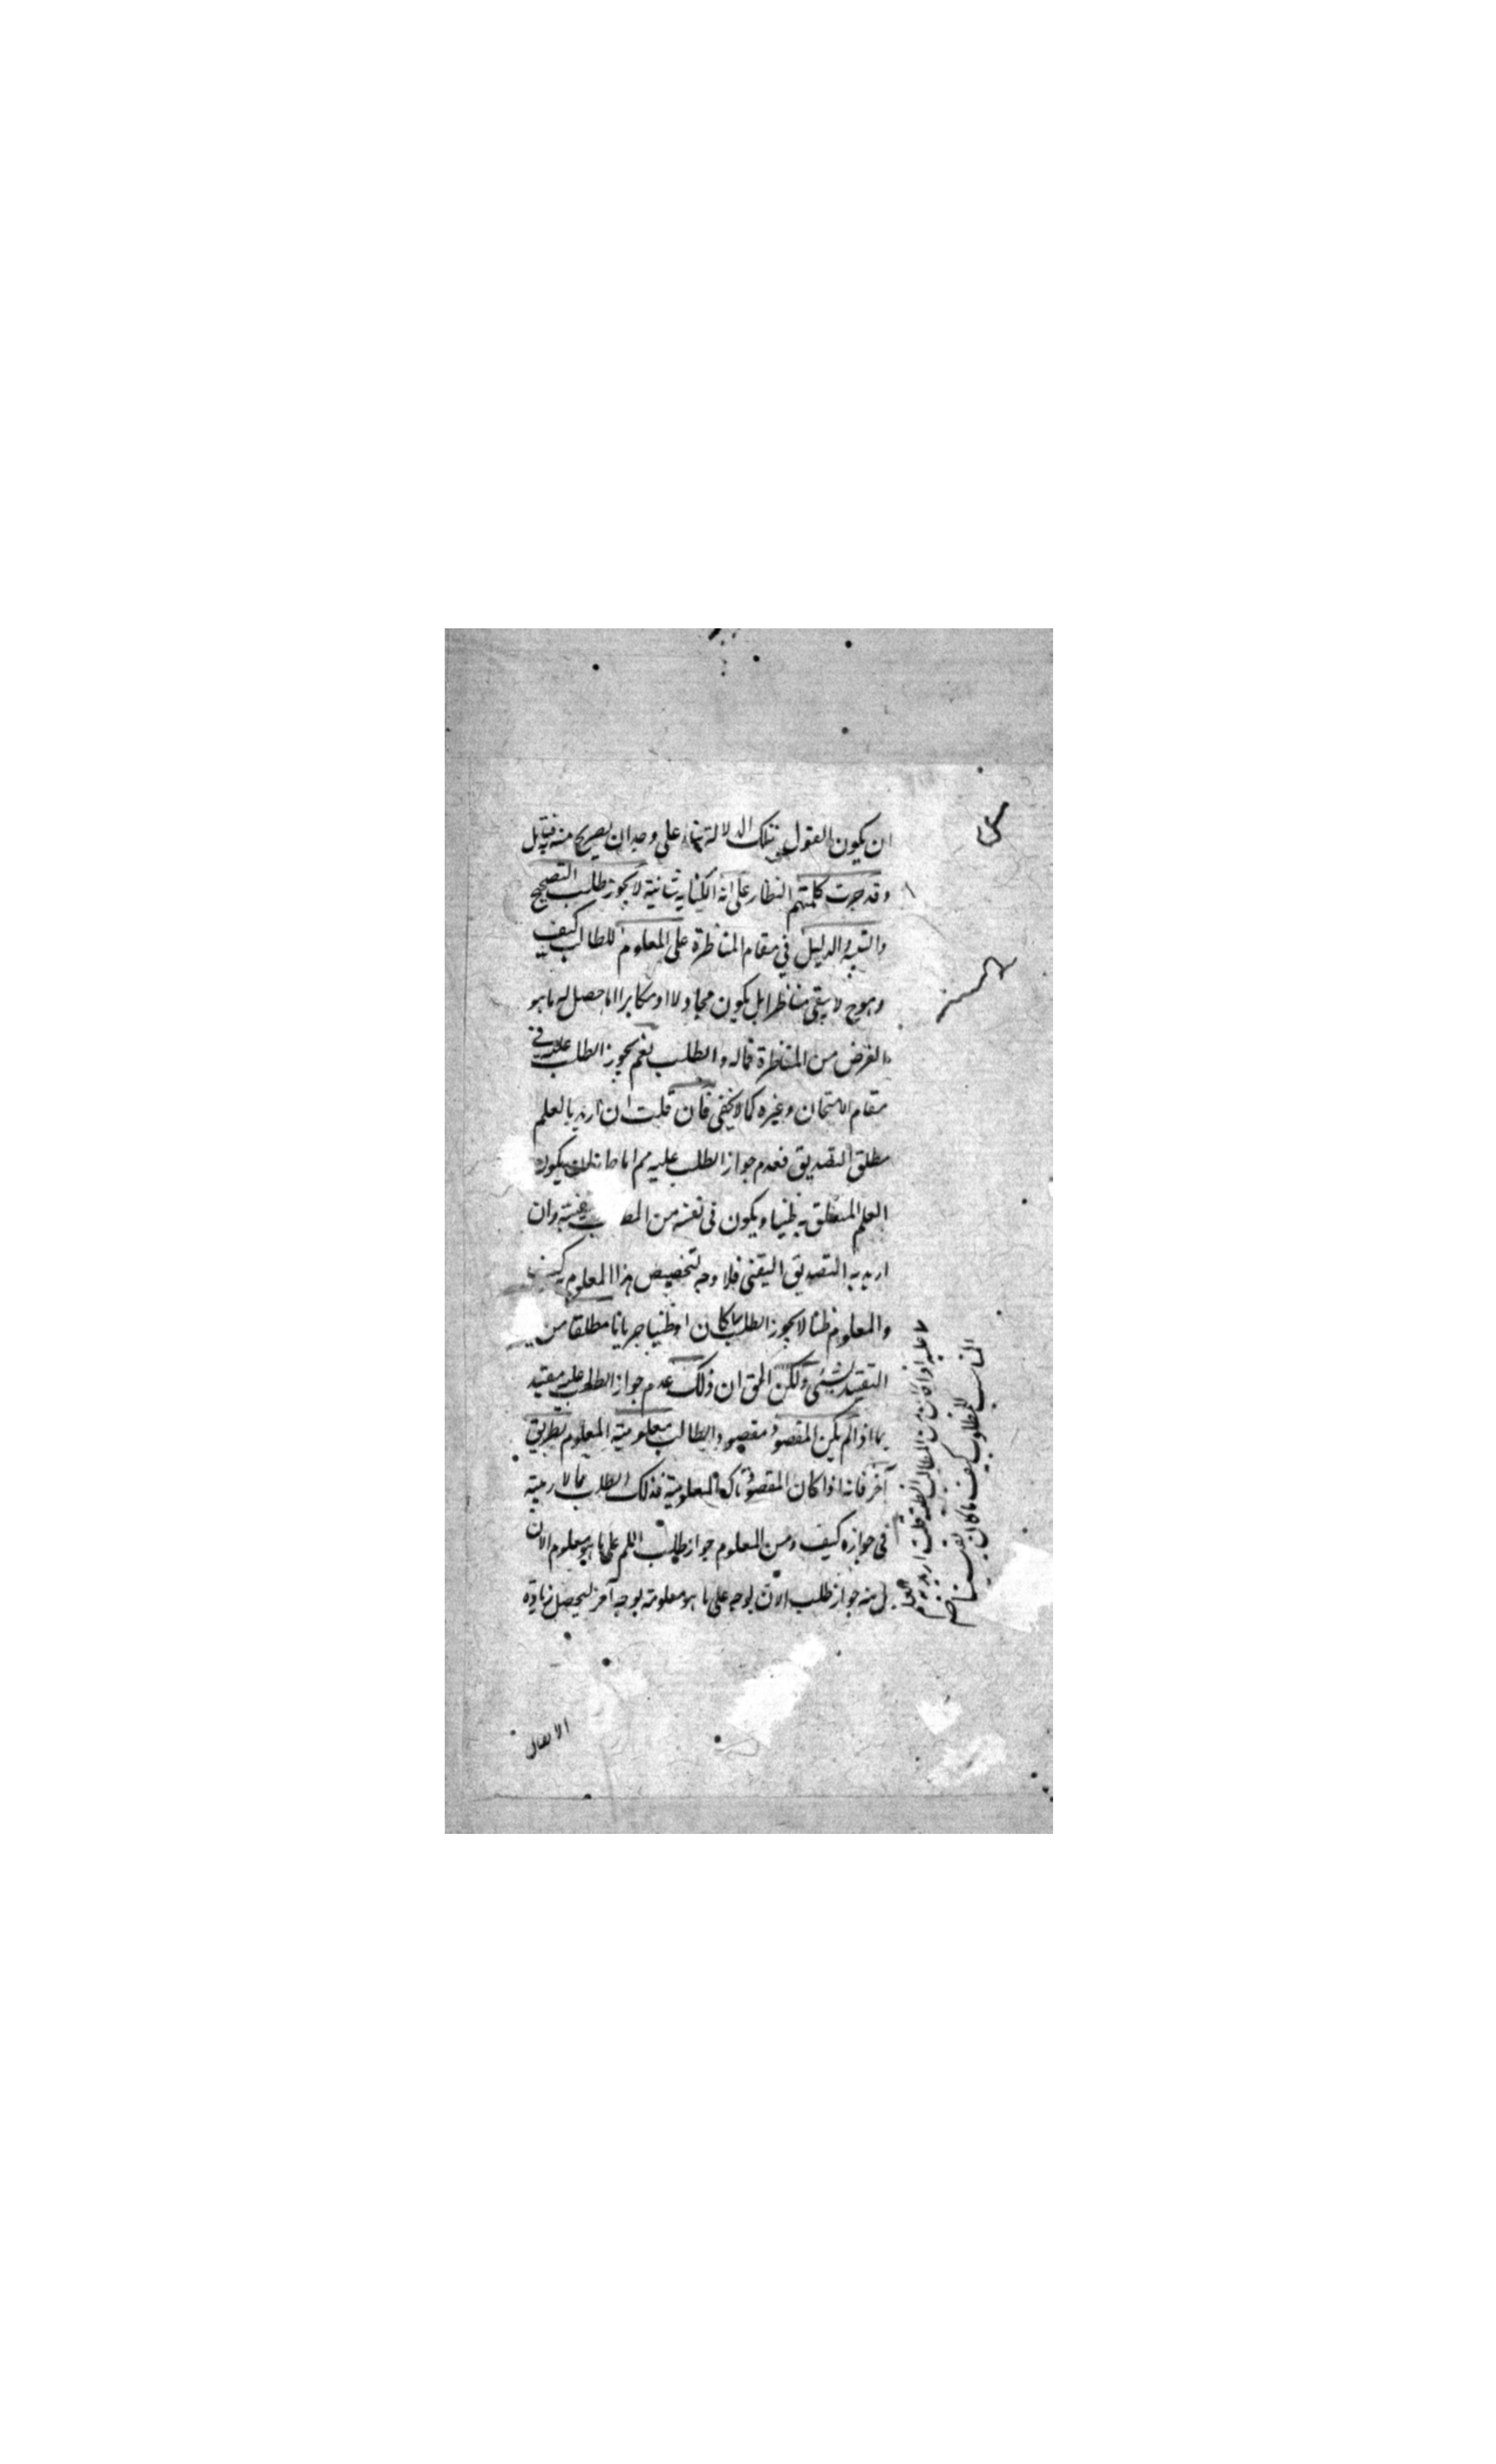 ان يكون القول بتلك الدلالة بناء على وجدان تصريح منه فتأمل
وقد جرت كلمتهم النظار على انه الكناية ثانية لا يجوز طلب التصحيح
والتنبيه والدليل في مقام المناظرة على المعلوم للطالب كيف
وهو ح لا يبقى مناظرا بل يكون مجادلا او مكابرا اذا حصل له ما هو
الغرض من المناظرة فماله والطلب نعم يجوز الطلب عليه في
مقام الامتحان وغيره كما لا يخفى فان قلت ان اريد بالعلم
مطلق التصديق فعدم جواز الطلب عليه مم اذا جاز ان يكون
العلم المتعلق به ظنيا ويكون في نفسه من وان
اريد به التصديق اليقنى فلا وجه لتخصيص هذا المعلوم كيف
والمعلوم ظنا لا يجوز الطلب كان او ظنيا جريانا مطلقا من
التقييد بشيئ ولكن الحق ان ذلك عدم جواز الطلب عليه مقيد
بما اذا لم يكن المقصود مقصود الطالب معلومية المعلوم بطريق
آخر فانه اذا كان المقصود تلك المعلومية فذلك الطلب مما لا ريبة
في جوازه كيف ومن المعلوم جواز طلب اللم على ما هو معلوم الان
بل منه جواز طلب الان بوجه على ما هو معلومة بوجه آخر ليحصل زيادة
عليه اذا كان من المطالب الظنية قلت اريد
المناسب للمطلوب كيف ما كان